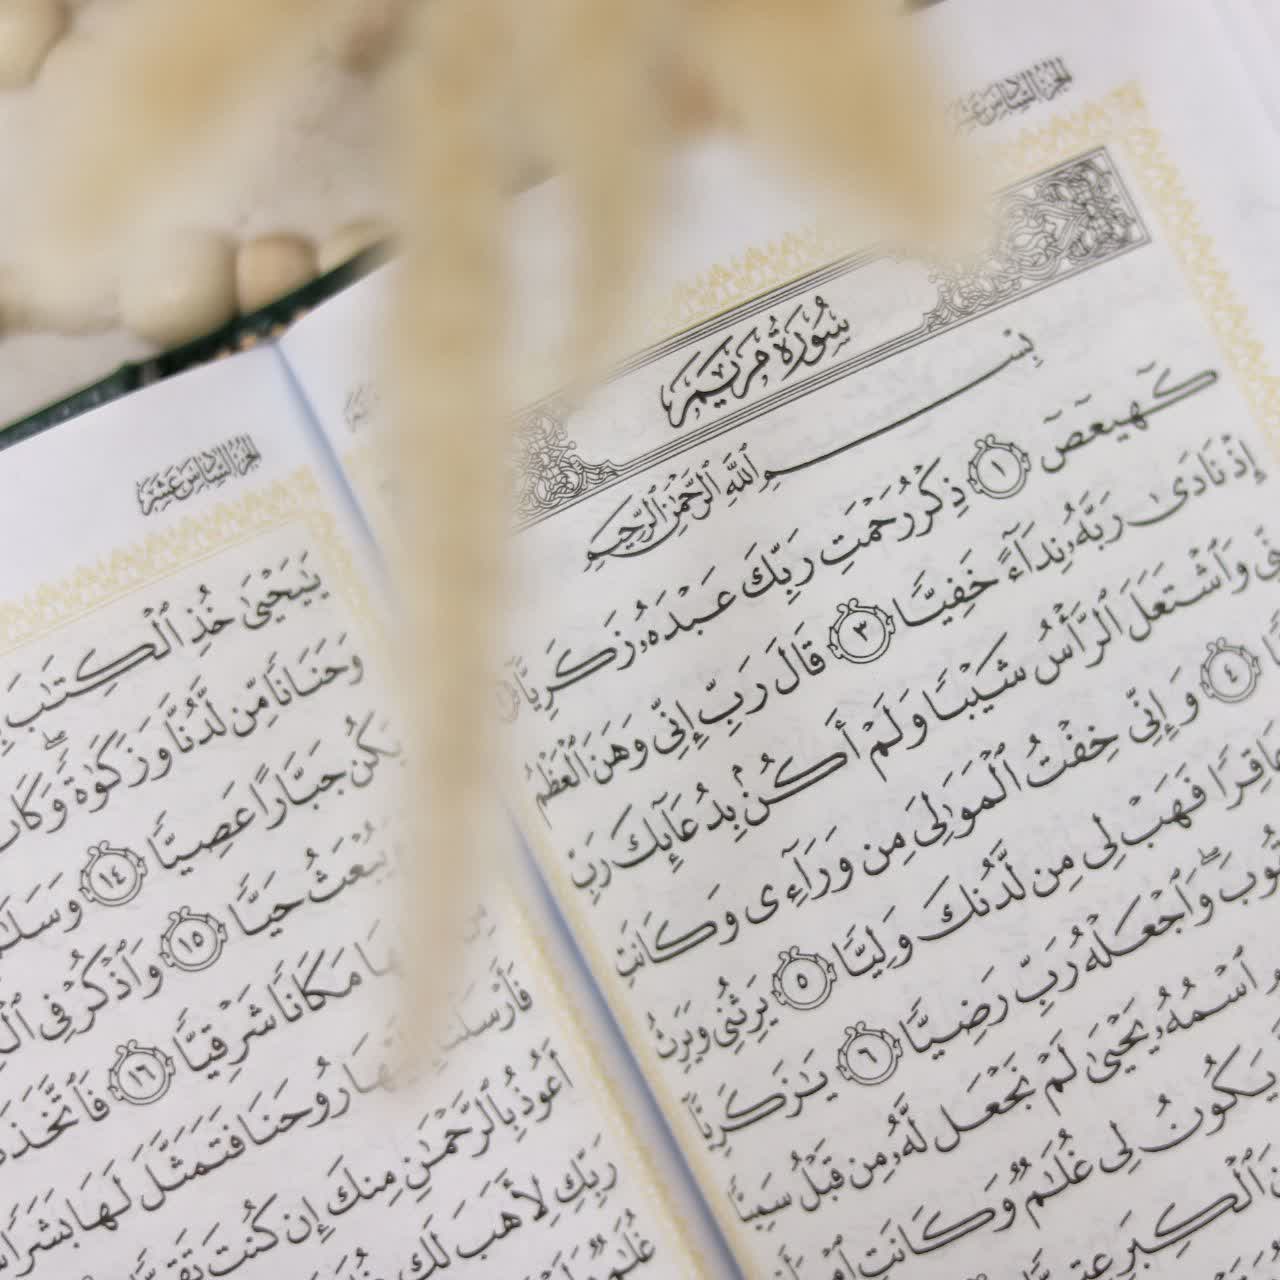 الجزء السادس عشر
سُورَةُ مَرْيَمَ
بِسْمِ ٱللَّهِ ٱلرَّحْمَٰنِ ٱلرَّحِيمِ
كٓهيعٓصٓ ١ ذِكْرُ رَحْمَتِ رَبِّكَ عَبْدَهُۥ زَكَرِيَّآ
إِذْ نَادَىٰ رَبَّهُۥ نِدَآءً خَفِيًّا ٣ قَالَ رَبِّ إِنِّى وَهَنَ ٱلْعَظْمُ
وَٱشْتَعَلَ ٱلرَّأْسُ شَيْبًا وَلَمْ أَكُنۢ بِدُعَآئِكَ رَبِّ
٤ وَإِنِّى خِفْتُ ٱلْمَوَٰلِىَ مِن وَرَآءِى وَكَانَتِ
فَهَبْ لِى مِن لَّدُنكَ وَلِيًّا ٥ يَرِثُنِى وَيَرِثُ
وَٱجْعَلْهُ رَبِّ رَضِيًّا ٦ يَٰزَكَرِيَّآ
ٱسْمُهُۥ يَحْيَىٰ لَمْ نَجْعَل لَّهُۥ مِن قَبْلُ سَمِيًّا
يَكُونُ لِى غُلَٰمٌ وَكَانَتِ
ٱلْكِبَرِ
الجزء السادس عشر
يَٰيَحْيَىٰ خُذِ ٱلْكِتَٰبَ
وَحَنَانًا مِّن لَّدُنَّا وَزَكَوٰةً ۖ وَكَانَ
يَكُن جَبَّارًا عَصِيًّا ١٤ وَسَلَٰمٌ
يُبْعَثُ حَيًّا ١٥ وَٱذْكُرْ فِى
مَكَانًا شَرْقِيًّا ١٦ فَٱتَّخَذَتْ
فَأَرْسَلْنَآ إِلَيْهَا رُوحَنَا فَتَمَثَّلَ لَهَا بَشَرًا
أَعُوذُ بِٱلرَّحْمَٰنِ مِنكَ إِن كُنتَ تَقِيًّا
رَبِّكِ لِأَهَبَ لَكِ
غُلَٰمٌ